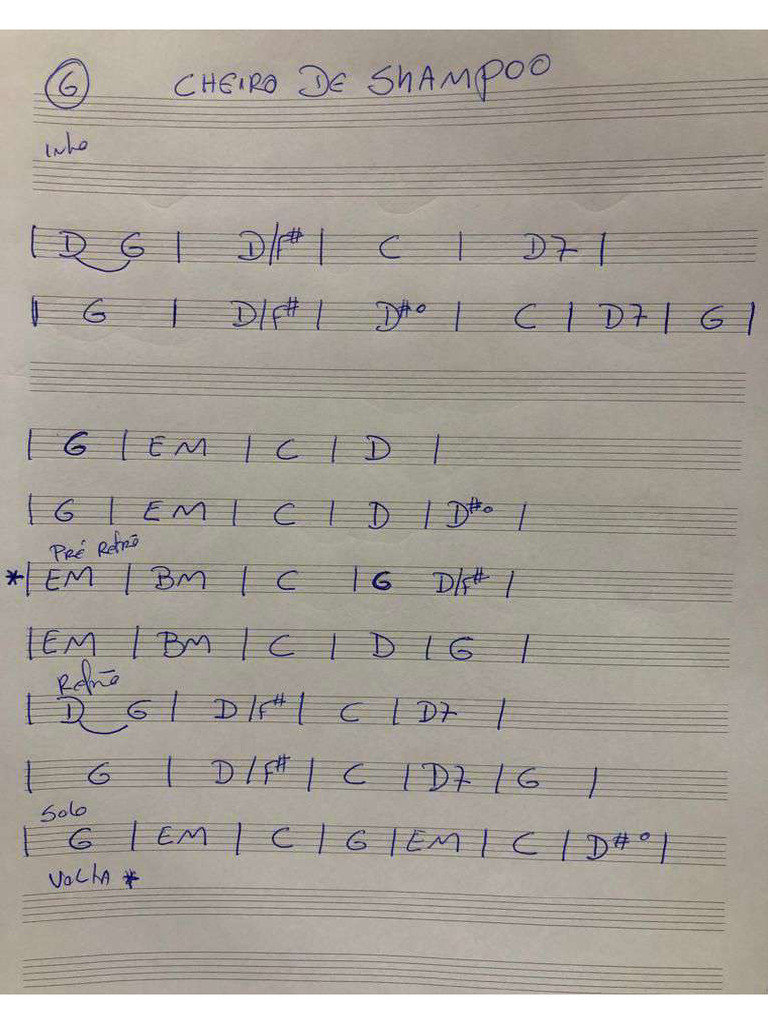 G CHEIRO DE SHAMPOO
Intro
| D G | D/F# | C | D7 |
| G | D/F# | D#° | C | D7 | G |
| G | EM | C | D |
| G | EM | C | D | D#° |
PRÉ Refrão
*| EM | BM | C | G D/F# |
| EM | BM | C | D | G |
Refrão
| D G | D/F# | C | D7 |
| G | D/F# | C | D7 | G |
Solo
| G | EM | C | G | EM | C | D#° |
VOLTA *